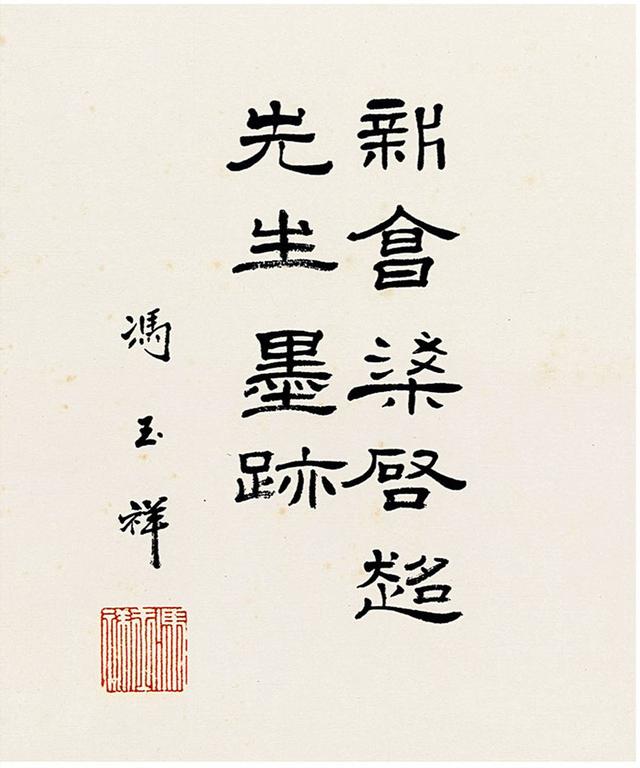 新會梁啓超
先生墨跡
馮玉祥